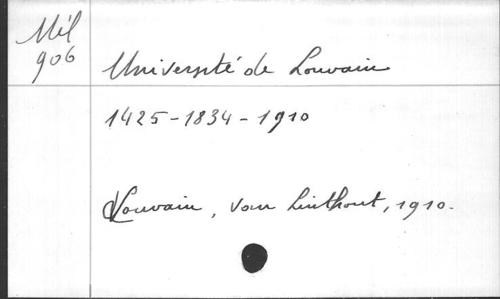 Mél
906
Université de Louvain
1425-1834-1910
Louvain, van Linthout, 1910.